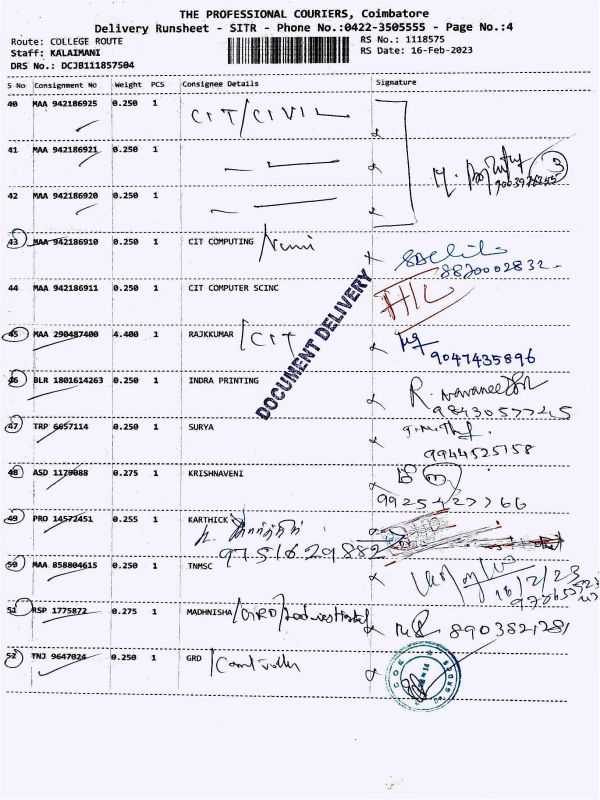 THE PROFESSIONAL COURIERS, Coimbatore
Delivery Runsheet - SITR - Phone No.:0422-3505555 - Page No.:4
Route: COLLEGE ROUTE RS No.: 1118575
Staff: KALAIMANI RS Date: 16-Feb-2023
DRS No.: DCJB111857504
S No Consignment No Weight PCS Consignee Details Signature
40 MAA 942186925 0.250 1 CIT/CIVIL
41 MAA 942186921 0.250 1
3
42 MAA 942186920 0.250 1
43 MAA 942186910 0.250 1 CIT COMPUTING
8870002832
44 MAA 942186911 0.250 1 CIT COMPUTER SCINC
DOCUMENT DELIVERY
45 MAA 290487400 4.400 1 RAJKKUMAR /CIT
9047435896
46 BLR 1801614263 0.250 1 INDRA PRINTING R.
9843057725
47 TRP 6657114 0.250 1 SURYA
9944525158
48 ASD 1179088 0.275 1 KRISHNAVENI
9925427766
49 PRO 14572451 0.255 1 KARTHICK
9751629882
50 MAA 858804615 0.250 1 TNMSC
16/2/23
51 RSP 1775872 0.275 1 MADHNISHA /GRD/ 8903821281
52 TNJ 9647024 0.250 1 GRD
COE